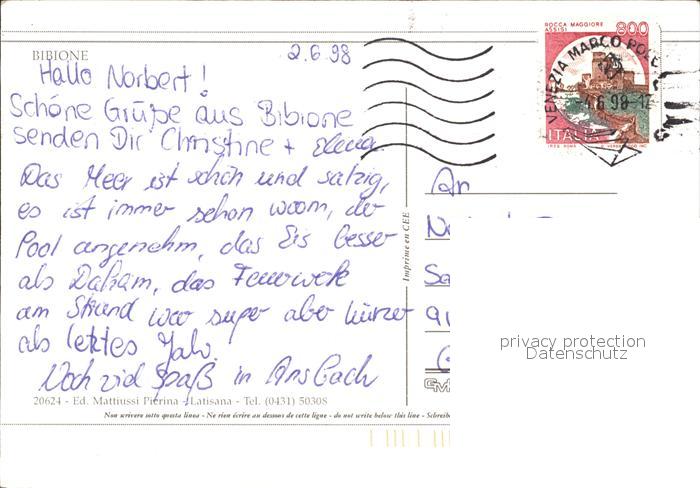 BIBIONE
2.6.98
Hallo Norbert!
Schöne Grüße aus Bibione
senden Dir Christine + Elena.
Das Meer ist schön und salzig,
es ist immer schon warm, der
Pool angenehm, das Eis besser
als Daham, das Feuerwerk
am Strand war super aber kürzer
als letztes Jahr.
Noch viel Spaß in Ansbach
20624 - Ed. Mattiussi Pierina - Latisana - Tel. (0431) 50308
Non scrivere sotto questa linea - Ne rien écrire au dessous de cette ligne - do not write below this line - Schreib
Imprimé en CEE
ROCCA MAGGIORE
ASSISI
800
ITALIA
VENEZIA MARCO POLO
-4.6.98-12
An
privacy protection
Datenschutz